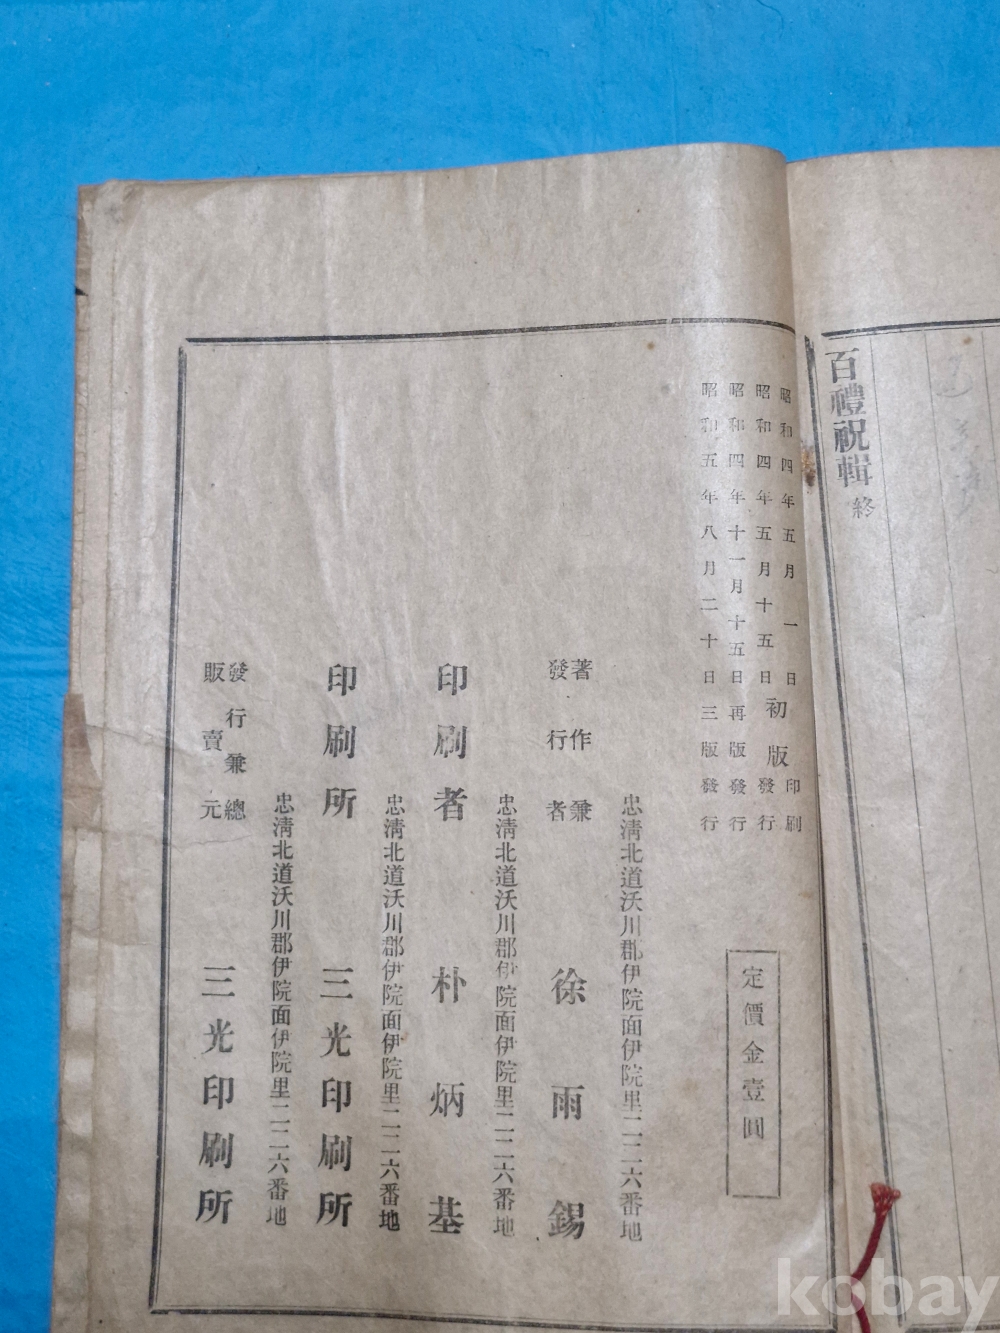 百禮祝輯 終
昭和四年五月一日 初版 印刷
昭和四年五月十五日 發行
昭和四年十一月十五日再版發行
昭和五年八月二十日三版發行
定價金壹圓
忠清北道沃川郡伊院面伊院里二二六番地
著作兼
發行者
徐雨錫
忠清北道沃川郡伊院面伊院里二二六番地
印刷者 朴炳基
忠清北道沃川郡伊院面伊院里二二六番地
印刷所 三光印刷所
忠清北道沃川郡伊院面伊院里二二六番地
發行兼總
販賣元
三光印刷所
kobay